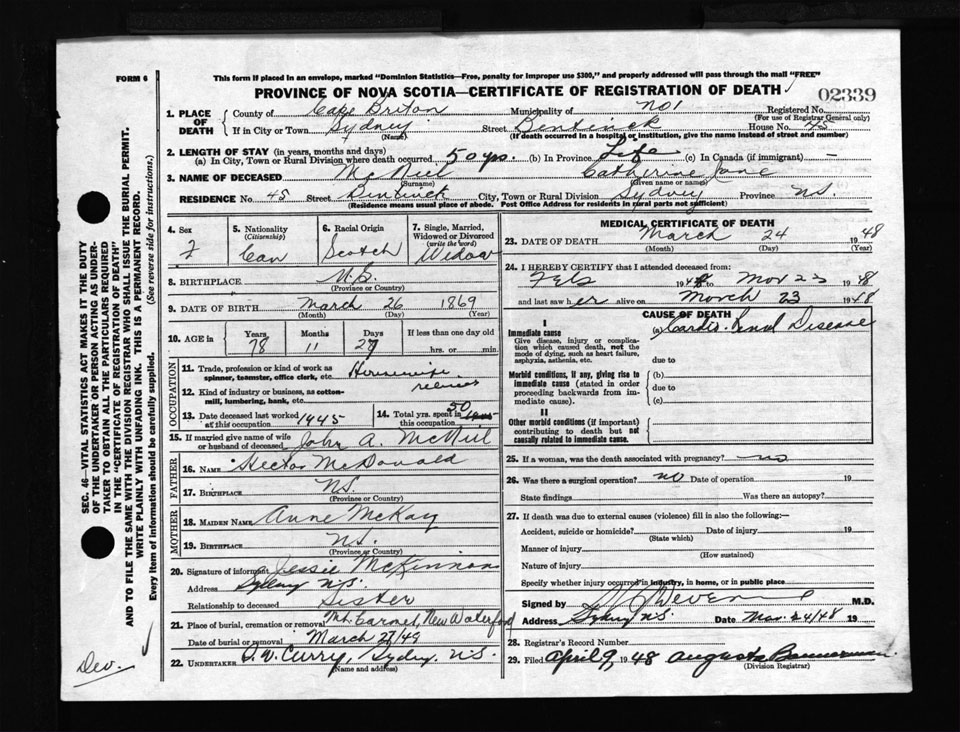 FORM 6
This form if placed in an envelope, marked "Dominion Statistics—Free, penalty for improper use $300," and properly addressed will pass through the mail "FREE"
PROVINCE OF NOVA SCOTIA—CERTIFICATE OF REGISTRATION OF DEATH
02339
1. PLACE OF DEATH County of Cape Breton Municipality of No 1 Registered No.
(For use of Registrar General only)
If in City or Town Sydney (Name) Street Bentinck House No. 45
(If death occurred in a hospital or institution, give the name instead of street and number)
2. LENGTH OF STAY (in years, months and days)
(a) In City, Town or Rural Division where death occurred 50 yrs. (b) In Province Life (c) In Canada (if immigrant) —
3. NAME OF DECEASED McNeil Catherine Jane
(Surname) (Given name or names)
RESIDENCE No. 45 Street Bentinck City, Town or Rural Division Sydney Province NS
(Residence means usual place of abode. Post Office Address for residents in rural parts not sufficient)
4. Sex 5. Nationality (Citizenship) 6. Racial Origin 7. Single, Married, Widowed or Divorced (write the word)
F Can Scotch Widow
8. BIRTHPLACE N.S.
(Province or Country)
9. DATE OF BIRTH March 26 1869
(Month) (Day) (Year)
10. AGE in Years Months Days If less than one day old
78 11 27 hrs. or min.
OCCUPATION
11. Trade, profession or kind of work as spinner, teamster, office clerk, etc. Housewife
12. Kind of industry or business, as cotton-mill, lumbering, bank, etc.
13. Date deceased last worked at this occupation 1945 14. Total yrs. spent in this occupation 50
15. If married give name of wife or husband of deceased John A. McNeil
FATHER
16. NAME Hector McDonald
17. BIRTHPLACE NS.
(Province or Country)
MOTHER
18. MAIDEN NAME Anne McKay
19. BIRTHPLACE NS.
(Province or Country)
20. Signature of informant Jessie McKinnon
Address Sydney N.S.
Relationship to deceased Sister
21. Place of burial, cremation or removal Mt. Carmel, New Waterford
Date of burial or removal March 27/48
22. UNDERTAKER D.W. Curry, Sydney, N.S.
(Name and address)
MEDICAL CERTIFICATE OF DEATH
23. DATE OF DEATH March 24 1948
(Month) (Day) (Year)
24. I HEREBY CERTIFY that I attended deceased from:
Feb 1948 to Mar 23 1948
and last saw her alive on March 23 1948
CAUSE OF DEATH
I
Immediate cause (a) Cardio-Renal Disease
Give disease, injury or complication which caused death, not the mode of dying, such as heart failure, asphyxia, asthenia, etc.
due to
Morbid conditions, if any, giving rise to immediate cause (stated in order proceeding backwards from immediate cause).
(b)
due to
(c)
II
Other morbid conditions (if important) contributing to death but not causally related to immediate cause.
25. If a woman, was the death associated with pregnancy? no
26. Was there a surgical operation? no Date of operation 19
State findings Was there an autopsy?
27. If death was due to external causes (violence) fill in also the following:
Accident, suicide or homicide? Date of injury 19
(State which)
Manner of injury
(How sustained)
Nature of injury
Specify whether injury occurred in industry, in home, or in public place
Signed by M.D.
Address Sydney NS Date Mar. 24/48 19
28. Registrar's Record Number
29. Filed April 9 1948 Augusta Bannerman
(Division Registrar)
SEC. 46—VITAL STATISTICS ACT MAKES IT THE DUTY
OF THE UNDERTAKER OR PERSON ACTING AS UNDER-
TAKER TO OBTAIN ALL THE PARTICULARS REQUIRED
IN THE "CERTIFICATE OF REGISTRATION OF DEATH"
AND TO FILE THE SAME WITH THE DIVISION REGISTRAR WHO SHALL ISSUE THE BURIAL PERMIT.
WRITE PLAINLY WITH UNFADING INK. THIS IS A PERMANENT RECORD.
Every item of information should be carefully supplied. (See reverse side for instructions.)
Dev.